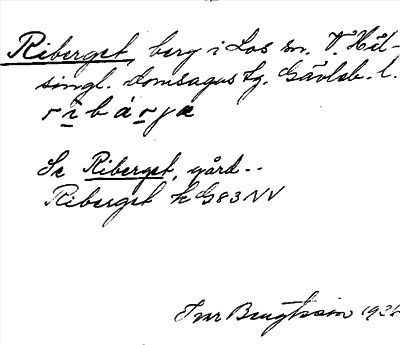 Riberget, berg i Los sn. V. Häl-
singl. domsagas tg. Gävleb. l.
rībárja
Se Riberget, gård..
Riberget k G83NV
Ivar Bengtsson